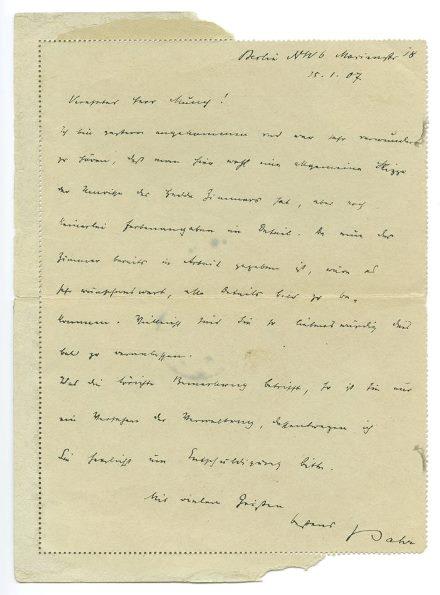 Berlin NW6 Marienstr 18
15.1.07.
Verehrter Herr Munch!
ich bin gestern angekommen und war sehr verwundert
zu hören, daß man hier wohl eine allgemeine Skizze
der des Hedda Zimmers hat, aber noch
keinerlei Farbenangaben im Detail. Da nun das
Zimmer bereits in Arbeit gegeben ist, wäre es
sehr wünschenswert, alle Details bald zu be-
kommen. Vielleicht sind Sie so liebenswürdig das
bald zu veranlassen.
Was die törichte Bemerkung betrifft, so ist sie nur
ein Versehen der Verwaltung, dessentwegen ich
Sie herzlichst um Entschuldigung bitte.
Mit vielen Grüßen
bestens Bahr